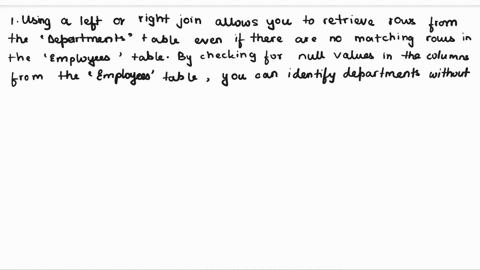 1. Using a left or right join allows you to retrieve rows from
the "Departments" table even if there are no matching rows in
the 'Employees' table. By checking for null values in the columns
from the 'Employees' table, you can identify departments without